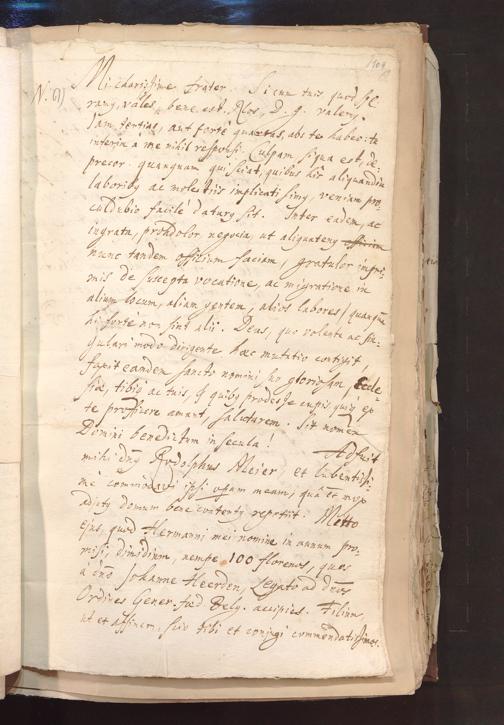 109
N. 61)
Mi charissime frater. Si cum tuis quos sal-
vang, vales, bene est. Nos, D. g. valemus.
Jam tertias, aut forte quartas, abs te habeo: te
interim a me nihil responsi. Culpam siqua est, de-
precor. quanquam qui sciat, quibus hic aliquandiu
laboribus ac molestiis implicati simus, veniam pro-
culdubio facile daturus sit. Inter eadem, ac
ingrata, prohdolor, negocia, ut aliquatenus
nunc tandem officium faciam, gratulor inpri-
mis de suscepta vocatione, ac migratione in
alium locum, aliam gentem, alios labores, quanquam
hi forte non sint alii. Deus, quo volente ac sin-
gulari modo dirigente haec mutatio contigit
faxit eandem sancto nomini suo gloriosam, Eccle-
siae, tibi ac tuis, et quibus prodesse cupis, quique ex
te proficere amant, salutarem. Sit nomen
Domini benedictum in secula! Adfuit
mihi dns Rodolphus Meier, et lubentissi-
me commodavi ipsi opam meam, qua et mox
adjutus domum bene contentus repetiit. Mitto
ejus, quod Hermanni mei nomine in annum pro-
misi, dimidium, nempe 100 florenos, quos
à dno Johanne Heerden, Legato ad dnos
Ordines Gener. foed Belg. accipies. Filium,
ut et affinem, suo tibi et conjugi commendatissimos.